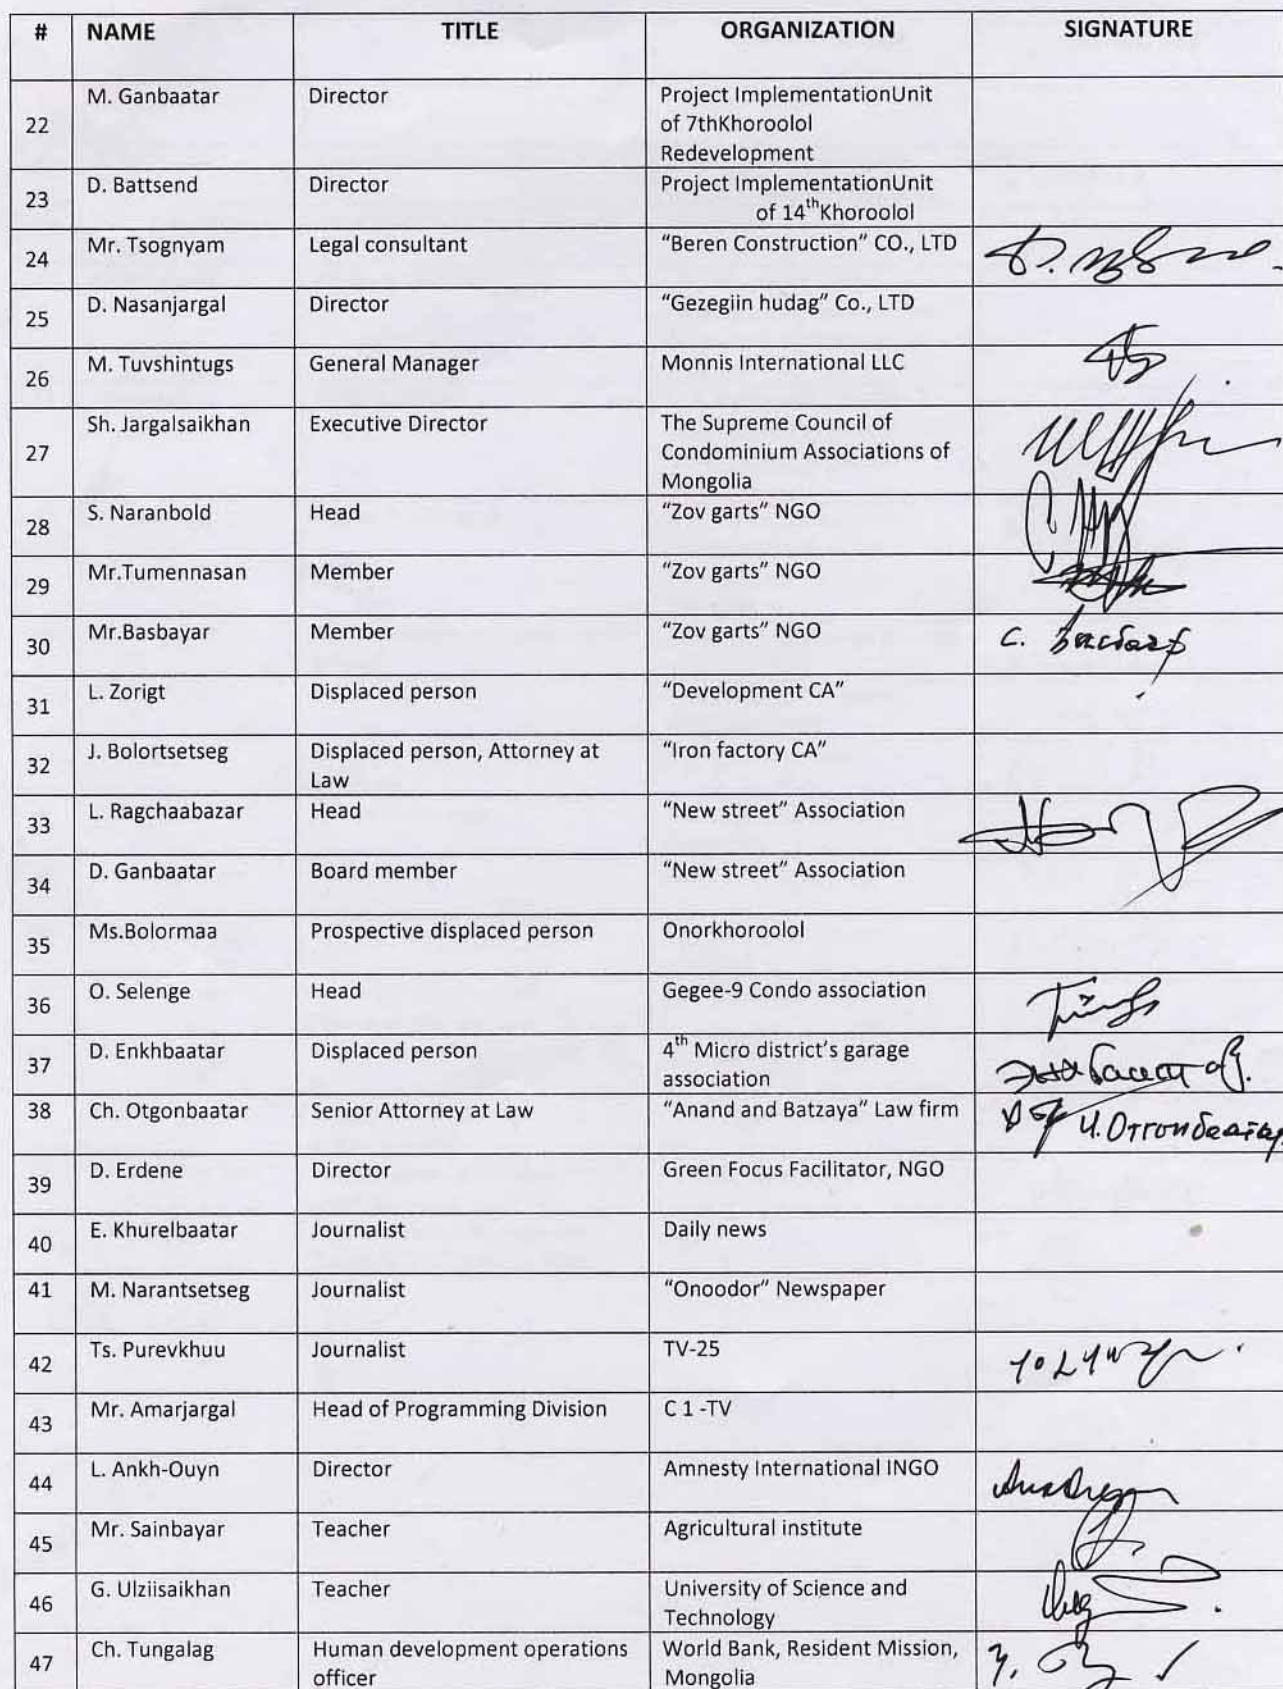 # NAME TITLE ORGANIZATION SIGNATURE
22 M. Ganbaatar Director Project ImplementationUnit
of 7thKhoroolol
Redevelopment
23 D. Battsend Director Project ImplementationUnit
of 14thKhoroolol
24 Mr. Tsognyam Legal consultant “Beren Construction” CO., LTD
25 D. Nasanjargal Director “Gezegiin hudag” Co., LTD
26 M. Tuvshintugs General Manager Monnis International LLC
27 Sh. Jargalsaikhan Executive Director The Supreme Council of
Condominium Associations of
Mongolia
28 S. Naranbold Head “Zov garts” NGO
29 Mr.Tumennasan Member “Zov garts” NGO
30 Mr.Basbayar Member “Zov garts” NGO С.
31 L. Zorigt Displaced person “Development CA”
32 J. Bolortsetseg Displaced person, Attorney at “Iron factory CA”
Law
33 L. Ragchaabazar Head “New street” Association
34 D. Ganbaatar Board member “New street” Association
35 Ms.Bolormaa Prospective displaced person Onorkhoroolol
36 O. Selenge Head Gegee-9 Condo association
37 D. Enkhbaatar Displaced person 4th Micro district’s garage
association
38 Ch. Otgonbaatar Senior Attorney at Law “Anand and Batzaya” Law firm Ч.Отгонбаатар
39 D. Erdene Director Green Focus Facilitator, NGO
40 E. Khurelbaatar Journalist Daily news
41 M. Narantsetseg Journalist “Onoodor” Newspaper
42 Ts. Purevkhuu Journalist TV-25
43 Mr. Amarjargal Head of Programming Division C 1 -TV
44 L. Ankh-Ouyn Director Amnesty International INGO
45 Mr. Sainbayar Teacher Agricultural institute
46 G. Ulziisaikhan Teacher University of Science and
Technology
47 Ch. Tungalag Human development operations World Bank, Resident Mission,
officer Mongolia